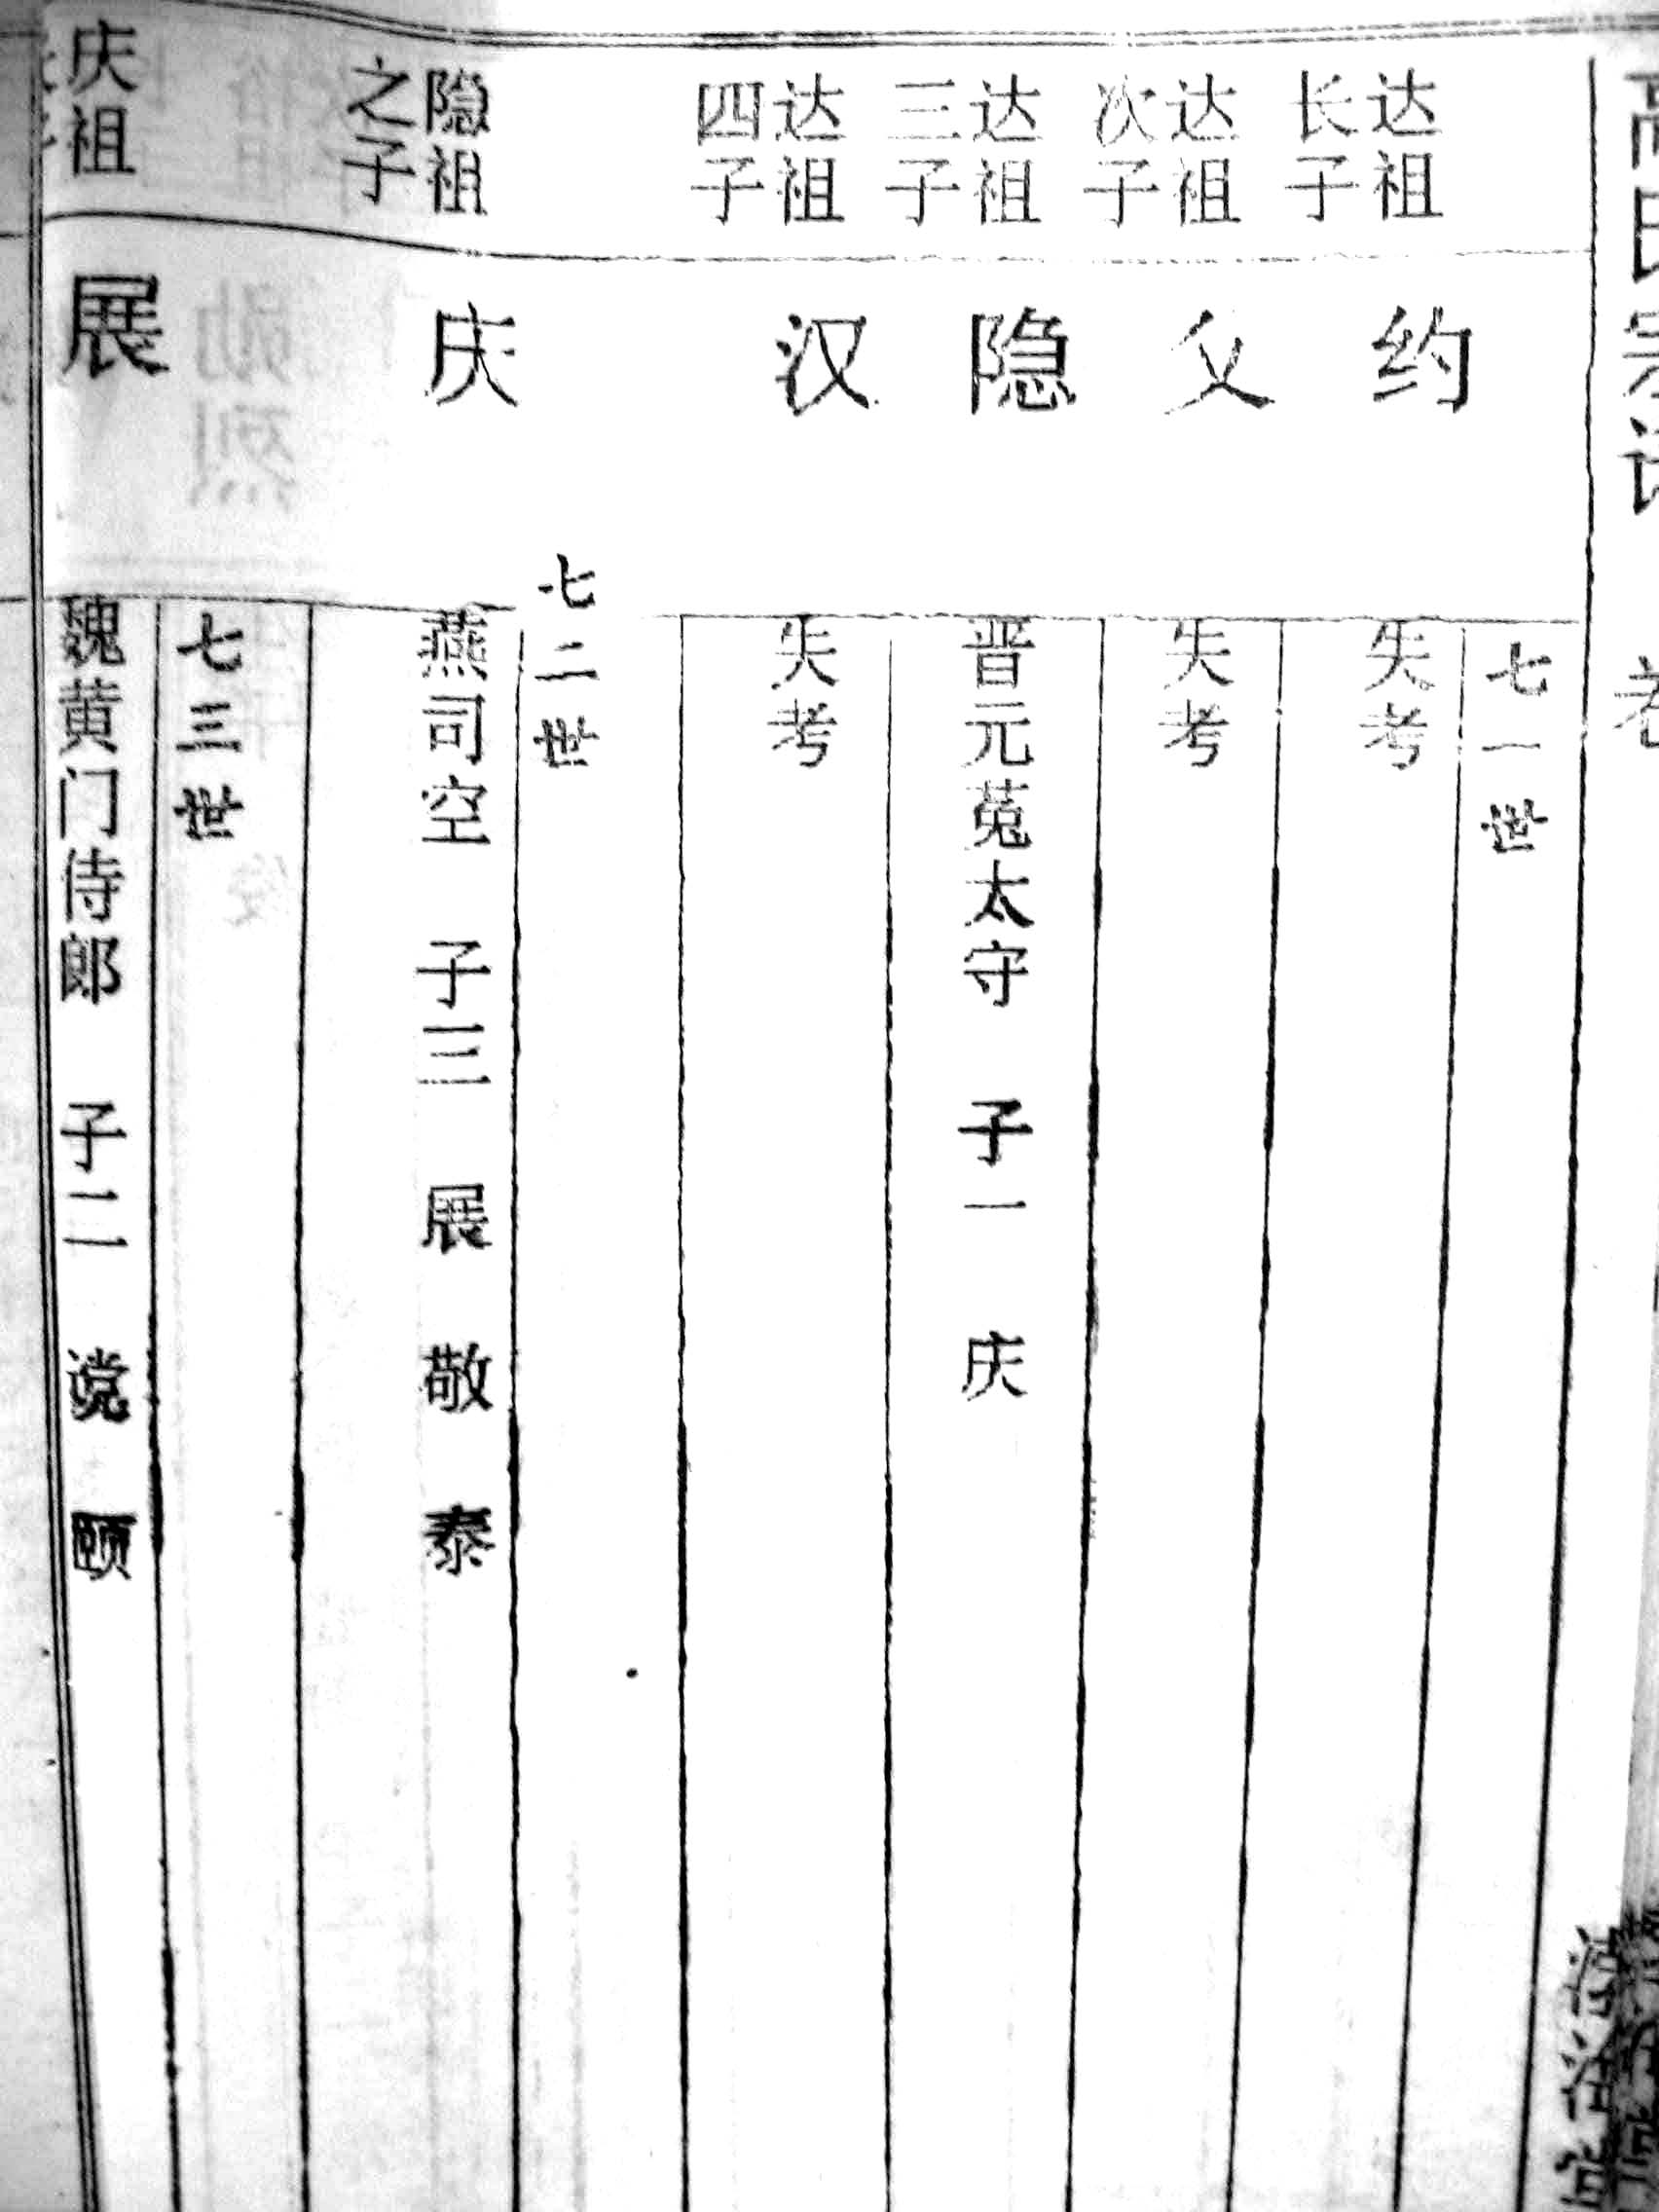 高氏宗谱
七一世
达祖
长子
约
失考
达祖
次子
父
失考
达祖
三子
隐
晋元菟太守 子一 庆
达祖
四子
汉
失考
七二世
隐祖
之子
庆
燕司空 子三 展 敬 泰
七三世
庆祖
展
魏黄门侍郎 子二 谠 颐